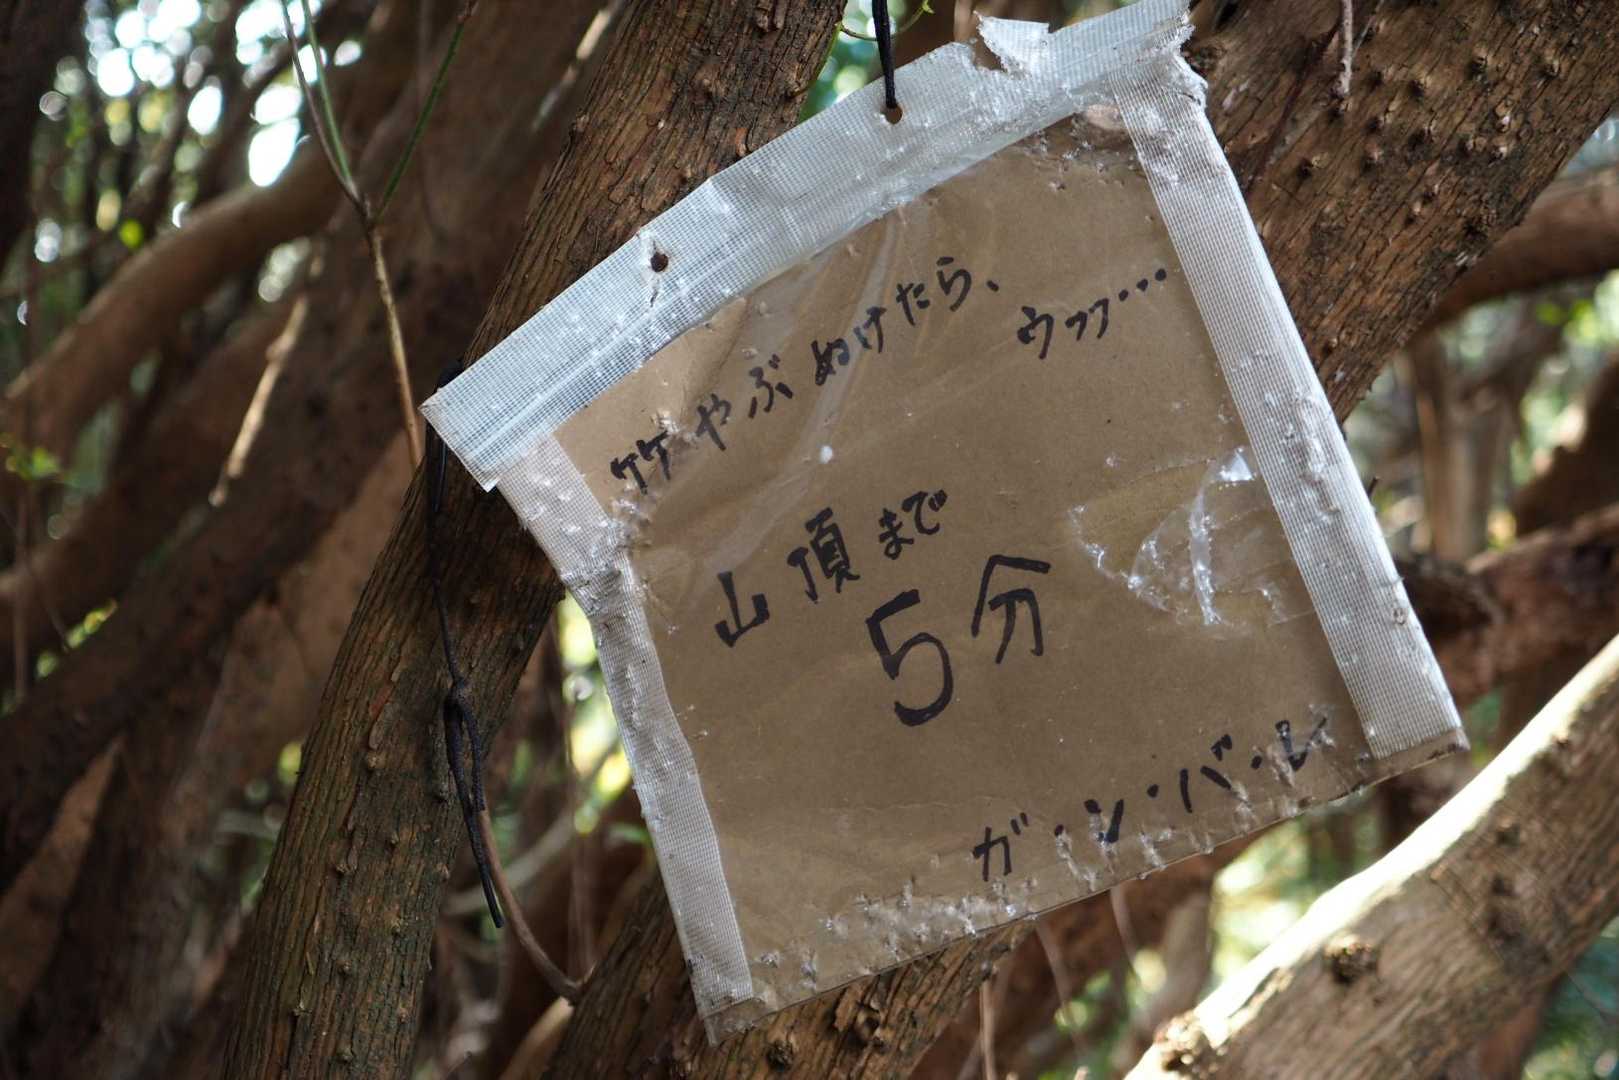 竹やぶぬけたら、
ウフフ・・・
山頂まで
5分
ガ・ン・バ・レ